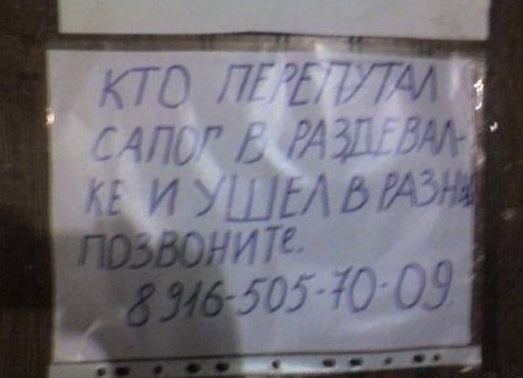 КТО ПЕРЕПУТАЛ
САПОГ В РАЗДЕВАЛ-
КЕ И УШЕЛ В
ПОЗВОНИТе.
8 916-505-70-09.